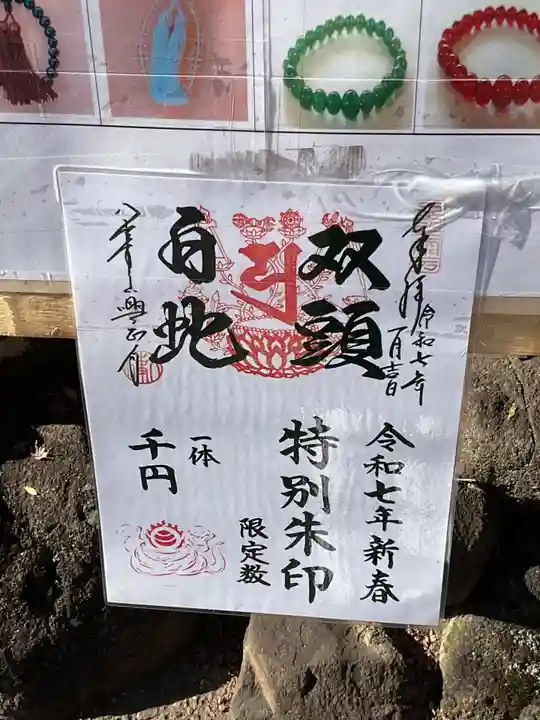 奉拝
令和七年
一月吉日
双頭
白蛇
令和七年新春
特別朱印
限定数
一体
千円